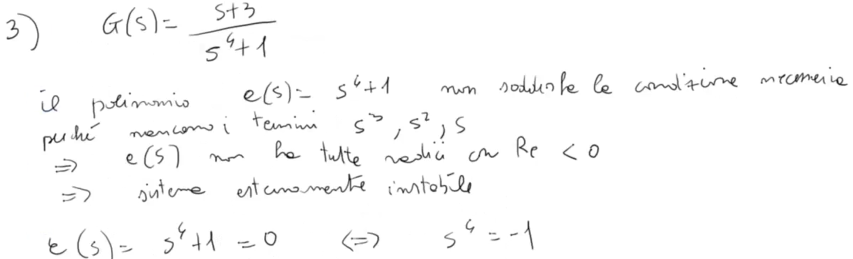 3) G(s) = s+3 / s⁴+1
il polinomio e(s) = s⁴+1 non soddisfa la condizione necessaria
perché mancano i termini s³, s², s
⇒ e(s) non ha tutte radici con Re < 0
⇒ sistema esternamente instabile
e(s) = s⁴+1 = 0 ⇔ s⁴ = -1